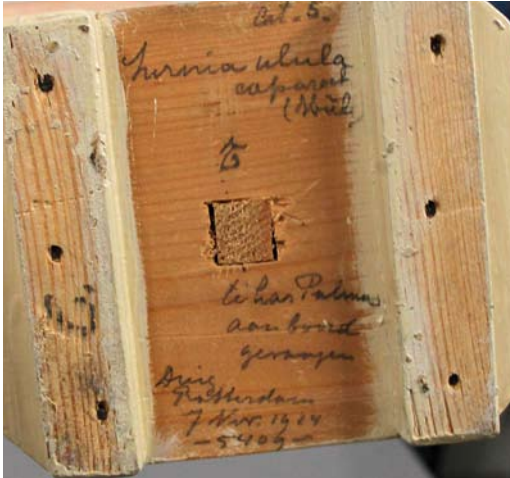 Cat. 5.
Surnia ulula
caparoch
(Müll)
te Las Palmas
aan boord
gevangen
Rotterdam
7 Nov. 1924
- 5409 -